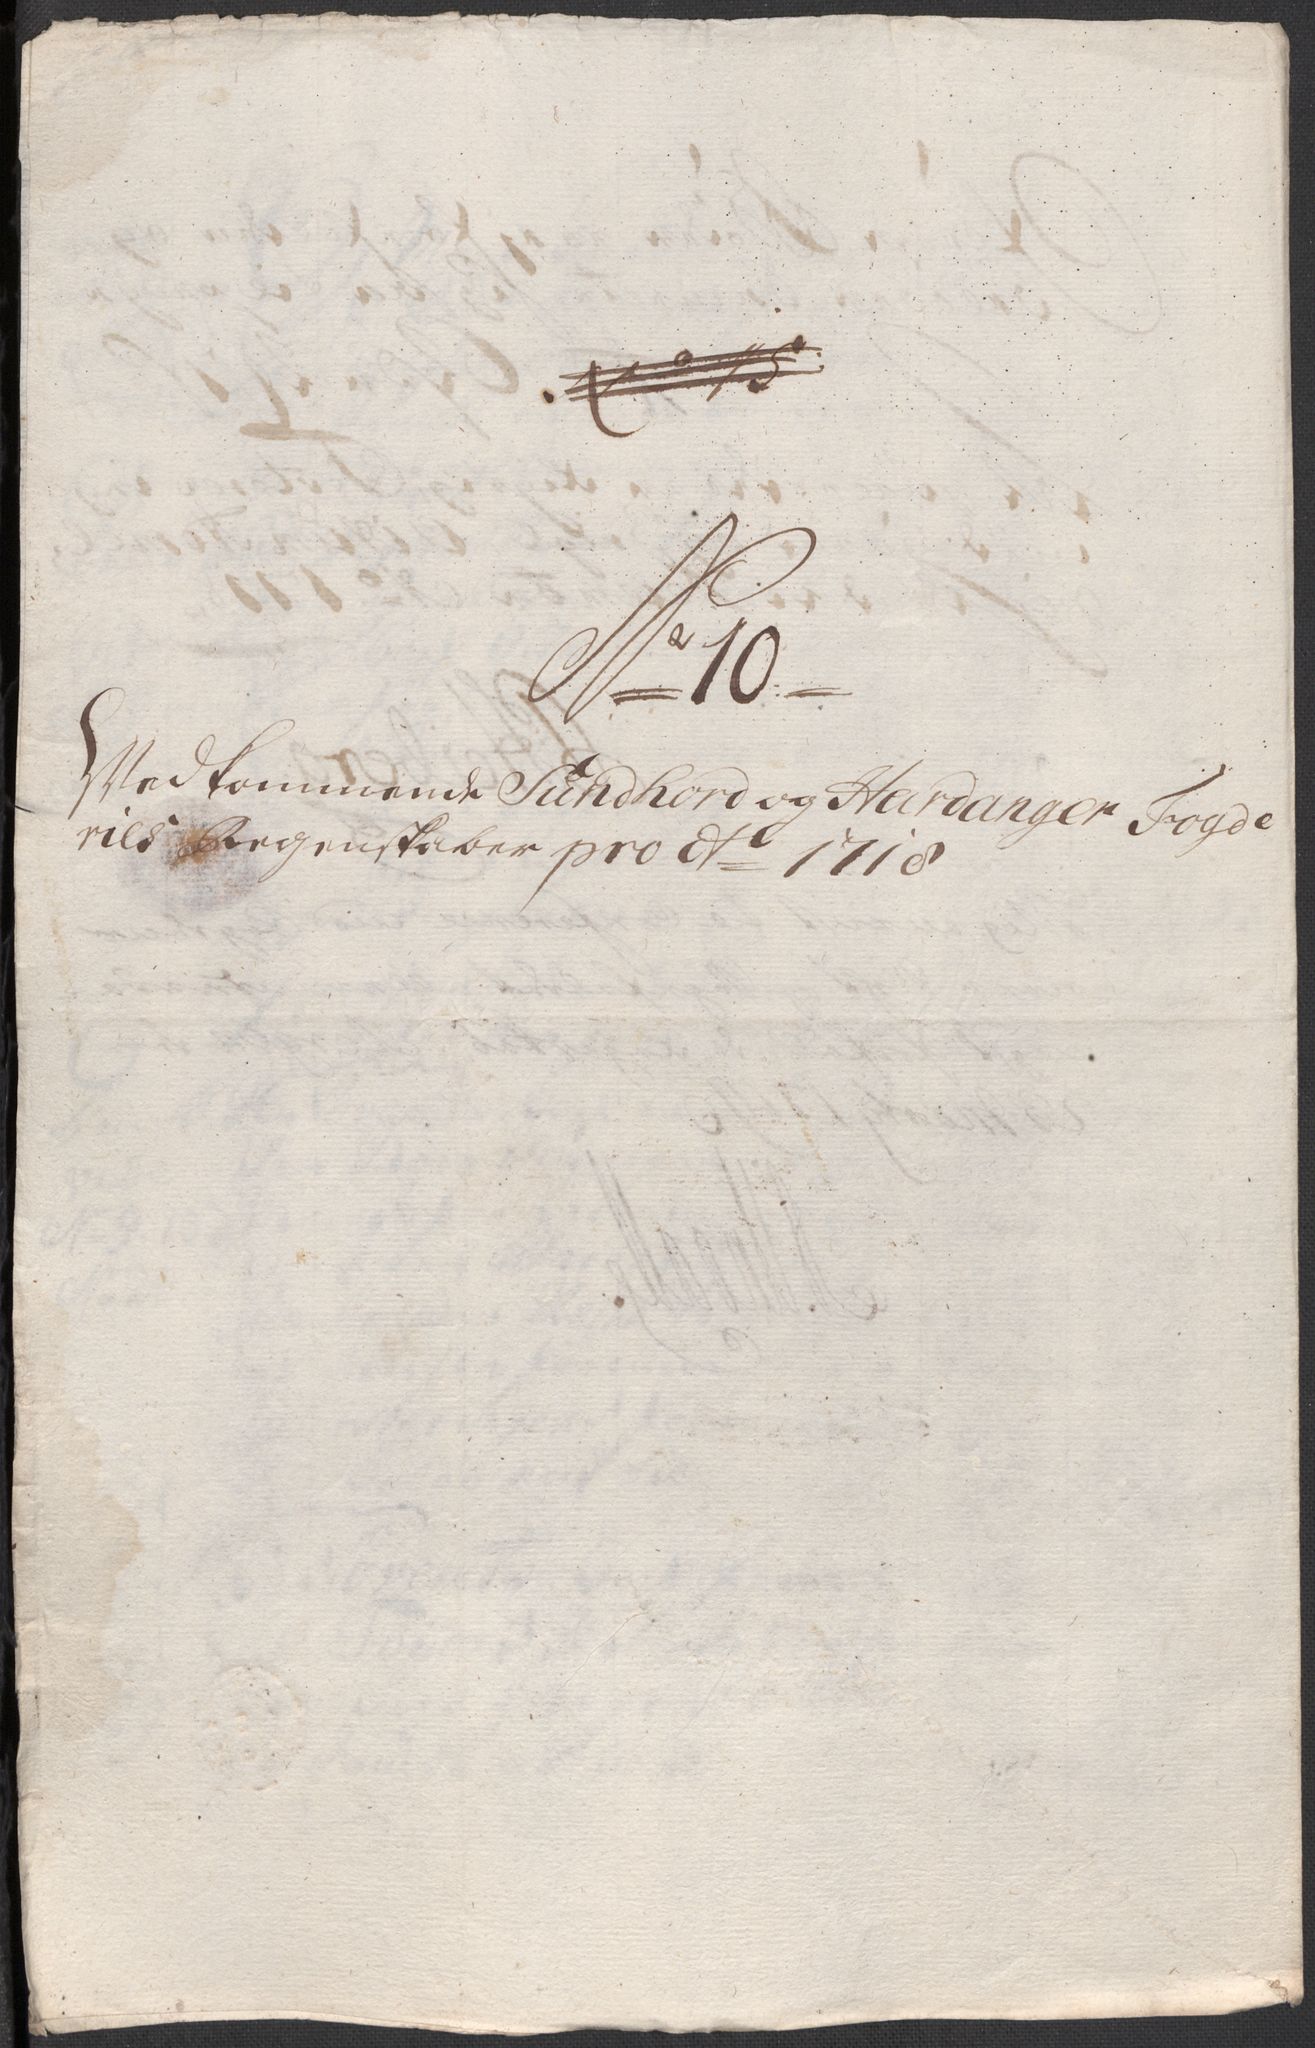 N° 15
No 10
Vedkommende Sundhord og Hardanger Fogde
ries Regenskaber pro Ao 1718